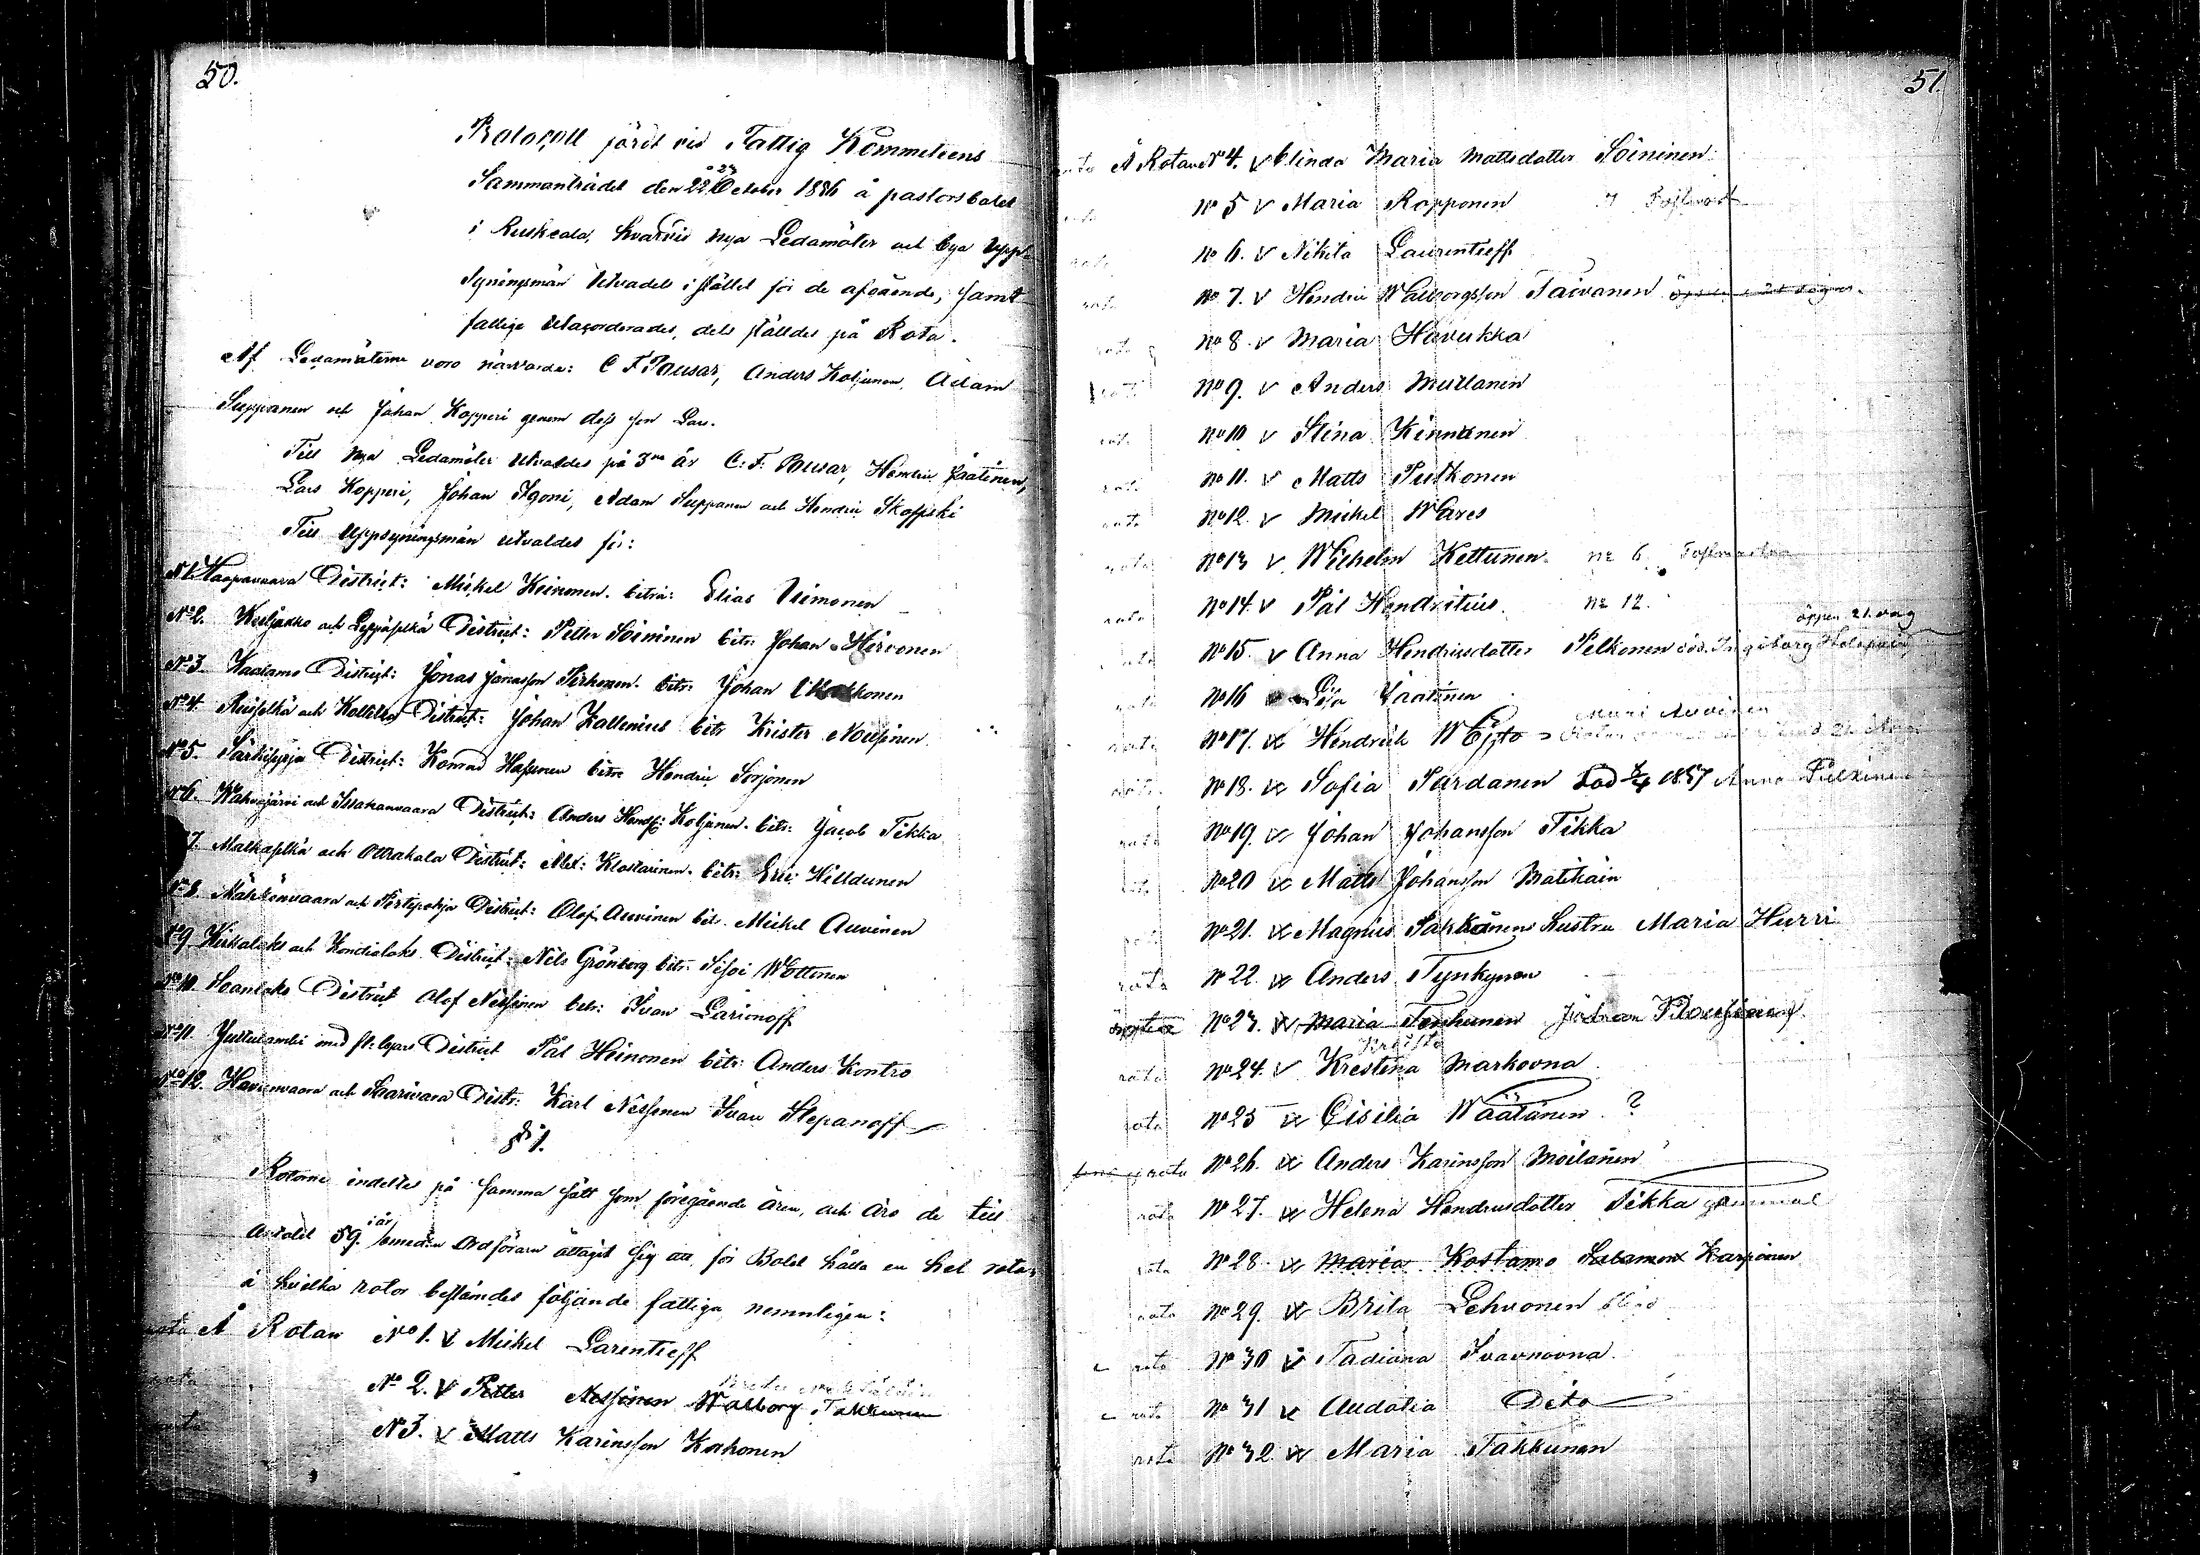 50.
Protocoll fördt vid Fattig Kommiteens
Sammanträdet den 22 o 23 October 1886 å pastorsbolet
i Ruskeala, hvarvid nya Ledamöter och nya Upp-
syningsmän utvaldes i stället för de afgående, samt
fattige utackorderades, dels ställdes på Rota.
Af Ledamöterne voro närvarde: C F Pousar, Anders Koljonen, Adam
Suppanen och Johan Kopperi genom dess son Lars.
Till nya Ledamöter utvaldes på 3ne år C: F: Pousar, Hendric Jaatinen,
Lars Kopperi, Johan Igoni, Adam Suppanen och Hendric Skopski
Till Uppsyningsmän utvaldes för:
No 1. Haapavaara District: Mickel Keinonen. bitr: Elias Vimonen
No 2. Kuljakko och Leppäselkä District: Petter Soininen bitr: Johan Hirvonen
No 3. Kaalamo District: Jonas Jonasson Pirhonen. bitr: Johan Kakkonen
No 4. Ruiselkä och District: Johan Kallenius bitr Krister Nousinen
No 5. Särkisyrjä District: Konrad Hassinen bitr: Hendric Sorjonen
No 6. Kahvijärvi och Issakanvaara District: Anders Hends: Koljonen. bitr: Jacob Tikka
7. Matkaselkä och Otrakala District: Alex: Klostarinen. bitr: Eric Hilldunen
No 8. och Pertipohja District: Olof Auvinen bit. Mickel Auvinen
No 9. och Kondialaks District: Nils Grönberg bitr: Sisoi Wottonen
No 10. Soanlaks District Olof Nissinen bitr: Ivan Larionoff
No 11. med District Pål Heinonen bitr: Anders Kontro
No 12. Havuvaara och Saarivaara Distr: Karl Nissinen Ivan Stepanoff
§ 1.
Rotorne indeltes på samma sätt som föregående åren, och äro de till
antalet 59. i år emedan Ordföranden åttagit sig att för Bolet hålla en hel rota;
å hvilka rotor bestämdes följande fattiga, nemnligen:
rota Å Rotan No 1. V Mickel Larentieff
rota No 2. V Petter Nissinen Walborg Takkunen
rota No 3. V Matts Karinsson Kokkonen
51.
rota Å Rotan No 4. V Elinda Maria Mattsdotter Soininen
rota No 5 V Maria Ropponen
rota No 6. V Nikita Laurentieff
rota No 7. V Hendric Walborgsson Taivanen
rota No 8. V Maria Havukka
rota No 9. V Anders Mullanen
rota No 10 V Stina Kinnunen
rota No 11. V Matts Pulkonen
rota No 12. V Mickel Wares
rota No 13 V Wilhelm Kettunen. no 6
rota No 14. V Pål Hendritius. no 12.
öppen 21. dag
rota No 15. V Anna Hendricsdotter Pelkonen Ingeborg Holopain
rota No 16 Lisa Jaatinen
Auvinen
rota No 17. V Hendrick
rota No 18. V Sofia Pardanen Död 1887 Anna Pulkinen
rota No 19. V Johan Johansson Tikka
rota No 20 V Matts Johansson Matikain
rota No 21. V Magnus Pakkanens hustru Maria Hurri
rota No 22. V Anders Tynkynen
No 23. V Maria Tenhunen Johan Nousiainen
rota No 24. V Krestina Markovna
rota No 25 V Cisilia Wäätänen. ?
rota No 26. V Anders Karinsson Moilanen
rota No 27. V Helena Hendricsdotter Tikka gammal
rota No 28. V Maria Kostamo Salamon Karpinen
rota No 29. V Brita Lehvonen blind
rota No 30 V Tadiana Ivanovna
rota No 31 V Audotia Dito
rota No 32 V Maria Takkunen